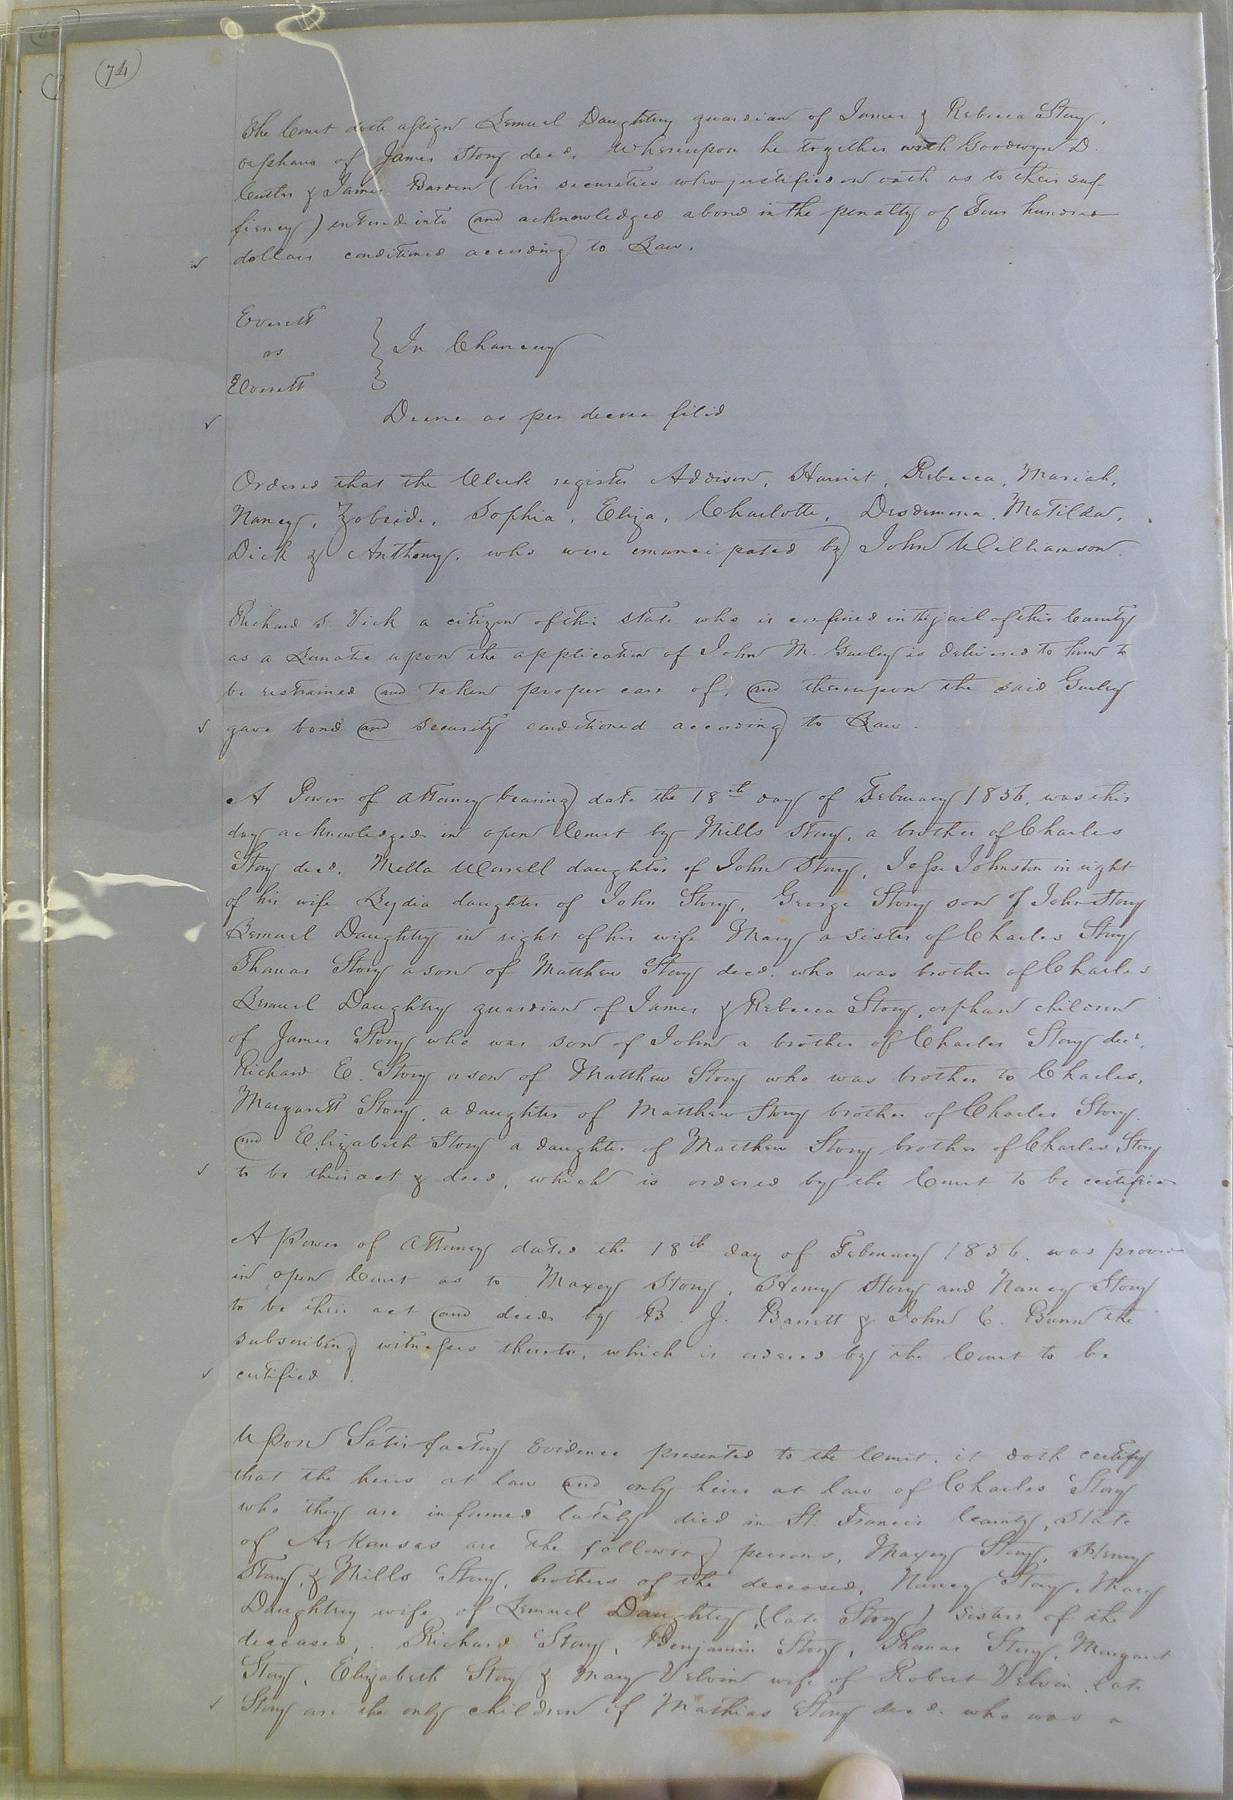 74
The Court doth assign Lemuel Daughtry guardian of James & Rebecca Story,
orphans of James Story decd. Whereupon he together with Goodwyn D.
Cutler & James Barden (his securities who justified on oath as to their suf
ficiency) entered into and acknowledged a bond in the penalty of Four hundred
dollars conditioned according to Law.
Everett
vs
Everett
In Chancery
Decree as per decree filed
Ordered that the Clerk register Addison, Harriet, Rebecca, Mariah,
Nancy, Zobeide, Sophia, Eliza, Charlotte, Desdemona, Matilda,
Dick & Anthony, who were emancipated by John Williamson.
Richard S Vick a citizen of this State who is confined in the jail of this County
as a Lunatic upon the application of John M. Gurley is delivered to him to
be restrained and taken proper care of, and thereupon the said Gurley
gave bond and security conditioned according to Law.
A Power of Attorney bearing date the 18th day of February 1856, was this
day acknowledged in open Court by Mills Story, a brother of Charles
Story decd, Mella Worrell daughter of John Story, Jesse Johnston in right
of his wife Lydia daughter of John Story, George Story son of John Story
Lemuel Daughtry in right of his wife Mary a sister of Charles Story
Thomas Story a son of Matthew Story decd. who was brother of Charles
Lemuel Daughtry guardian of James & Rebecca Story, orphan children
of James Story who was son of John a brother of Charles Story decd.
Richard E. Story a son of Matthew Story who was brother to Charles,
Margarett Story, a daughter of Matthew Story brother of Charles Story
and Elizabeth Story a daughter of Matthew Story brother of Charles Story
to be their act & deed, which is ordered by the Court to be certified
A Power of Attorney dated the 18th day of February 1856, was proven
in open Court as to Maxey Story, Henry Story and Nancy Story
to be their act and deed by B. J. Barrett & John C. Bunn the
subscribing witnesses thereto, which is ordered by the Court to be
certified.
Upon Satisfactory Evidence presented to the Court, it doth certify
that the heirs at law and only heirs at law of Charles Story
who they are informed lately died in St. Francis County, State
of Arkansas are the following persons, Maxey Story, Henry
Story, & Mills Story, brothers of the deceased, Nancy Story, Mary
Daughtry wife of Lemuel Daughtry, (late Story) sisters of the
deceased, Richard Story, Benjamin Story, Thomas Story, Margaret
Story, Elizabeth Story & Mary Velvin wife of Robert Velvin late
Story are the only children of Mathias Story decd. who was a